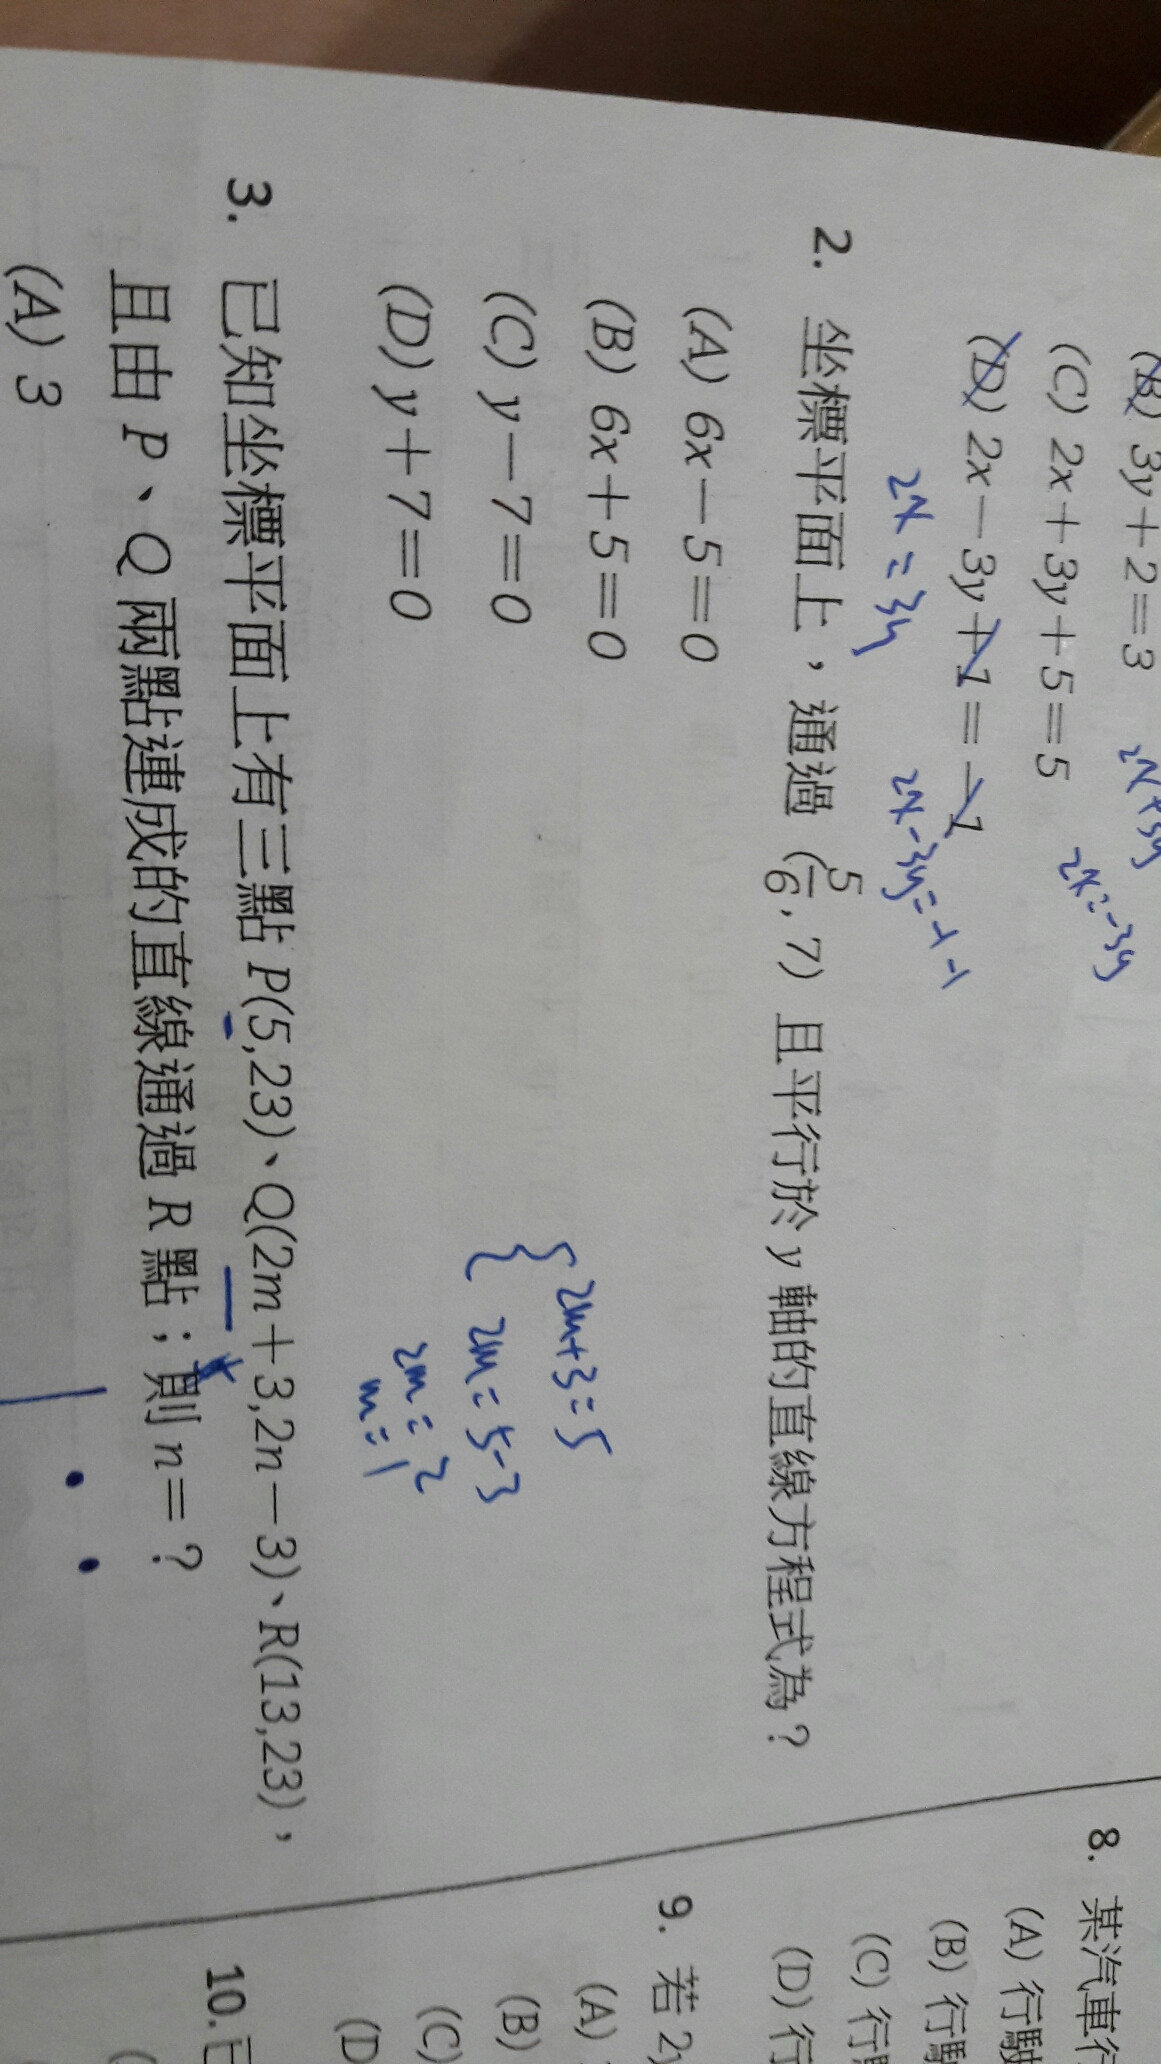 (B) 3y+2=3
(C) 2x+3y+5=5
2x=-3y
(D) 2x-3y+1=-1
2x=3y
2x-3y=-1-1
2. 坐標平面上，通過 (5/6, 7) 且平行於 y 軸的直線方程式為？
(A) 6x-5=0
(B) 6x+5=0
(C) y-7=0
(D) y+7=0
2m+3=5
2m=5-3
2m=2
m=1
3. 已知坐標平面上有三點 P(5,23)、Q(2m+3,2n-3)、R(13,23)，
且由 P、Q 兩點連成的直線通過 R 點；則 n=？
(A) 3
8. 某汽車行
(A) 行駛
(B) 行駛
(C) 行駛
(D) 行
9. 若 2y
(A)
(B)
(C)
(D
10. 已